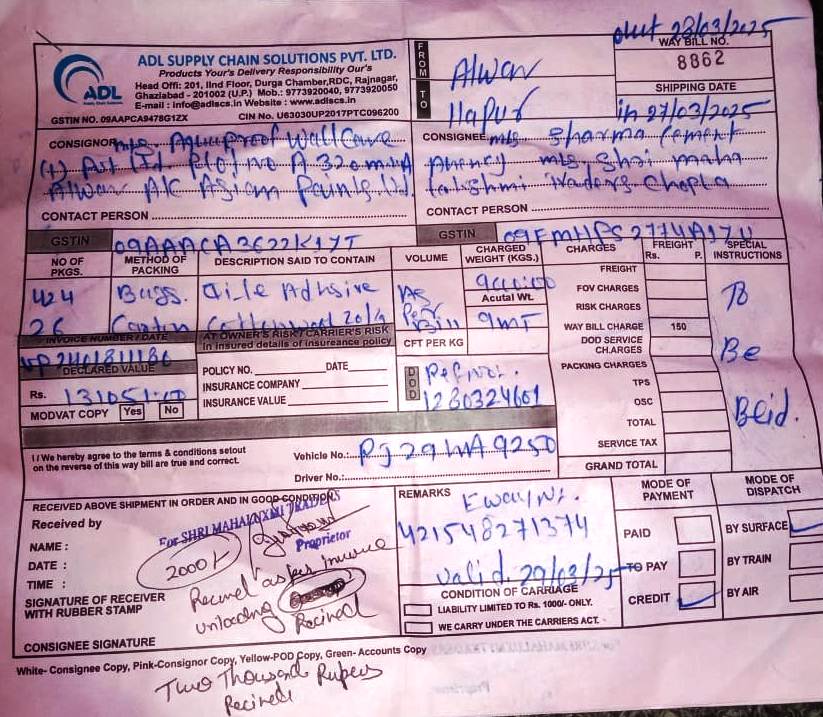 out 28/03/2025
ADL SUPPLY CHAIN SOLUTIONS PVT. LTD.
Products Your's Delivery Responsibility Our's
Head Offi: 201, IInd Floor, Durga Chamber,RDC, Rajnagar,
Ghaziabad - 201002 (U.P.) Mob.: 9773920040, 9773920050
E-mail : info@adlscs.in Website : www.adlscs.in
ADL
GSTIN NO. 09AAPCA9478G1ZX CIN No. U63030UP2017PTC096200
FROM Alwar
TO Hapur
WAY BILL NO.
8862
SHIPPING DATE
in 27/03/2025
CONSIGNOR M/s Aquaproof Wall Care
Pvt Ltd. Plot no A 320
Alwar Asian Paints Ltd.
CONTACT PERSON
CONSIGNEE M/s Sharma Cement
Agency M/s Shri maha
lakshmi Traders Chopla
CONTACT PERSON
GSTIN 09AAACA3622K1ZT
GSTIN
NO OF PKGS. METHOD OF PACKING DESCRIPTION SAID TO CONTAIN VOLUME CHARGED WEIGHT (KGS.) CHARGES FREIGHT Rs. P. SPECIAL INSTRUCTIONS
424 Bags. Tile Adhsive As 9000:00
Acutal Wt.
26 Per Bill 9MT
To
Be
FREIGHT
FOV CHARGES
RISK CHARGES
WAY BILL CHARGE 150
DOD SERVICE CHARGES
PACKING CHARGES
TPS
OSC
TOTAL
SERVICE TAX
GRAND TOTAL
INVOICE NUMBER / DATE
DECLARED VALUE
Rs. 131051:00
MODVAT COPY Yes No
AT OWNER'S RISK / CARRIER'S RISK
In insured details of insureance policy
POLICY NO. DATE
INSURANCE COMPANY
INSURANCE VALUE
CFT PER KG
DOD Ref No:.
1230324601
I / We hereby agree to the terms & conditions setout
on the reverse of this way bill are true and correct.
Vehicle No.: RJ 29 9250
Driver No.:
RECEIVED ABOVE SHIPMENT IN ORDER AND IN GOOD CONDITIONS
Received by
For SHRI MAHALAXMI TRADERS
Proprietor
NAME :
DATE :
TIME :
2000/-
Recived as per Invoice
unloading
Recived
SIGNATURE OF RECEIVER
WITH RUBBER STAMP
CONSIGNEE SIGNATURE
REMARKS
Eway No:.
421548271374
valid. 29/03/25
CONDITION OF CARRIAGE
LIABILITY LIMITED TO Rs. 1000/- ONLY.
WE CARRY UNDER THE CARRIERS ACT.
MODE OF PAYMENT
PAID
TO PAY
CREDIT
MODE OF DISPATCH
BY SURFACE
BY TRAIN
BY AIR
White- Consignee Copy, Pink-Consignor Copy, Yellow-POD Copy, Green- Accounts Copy
Two Thousand Rupees
Recived